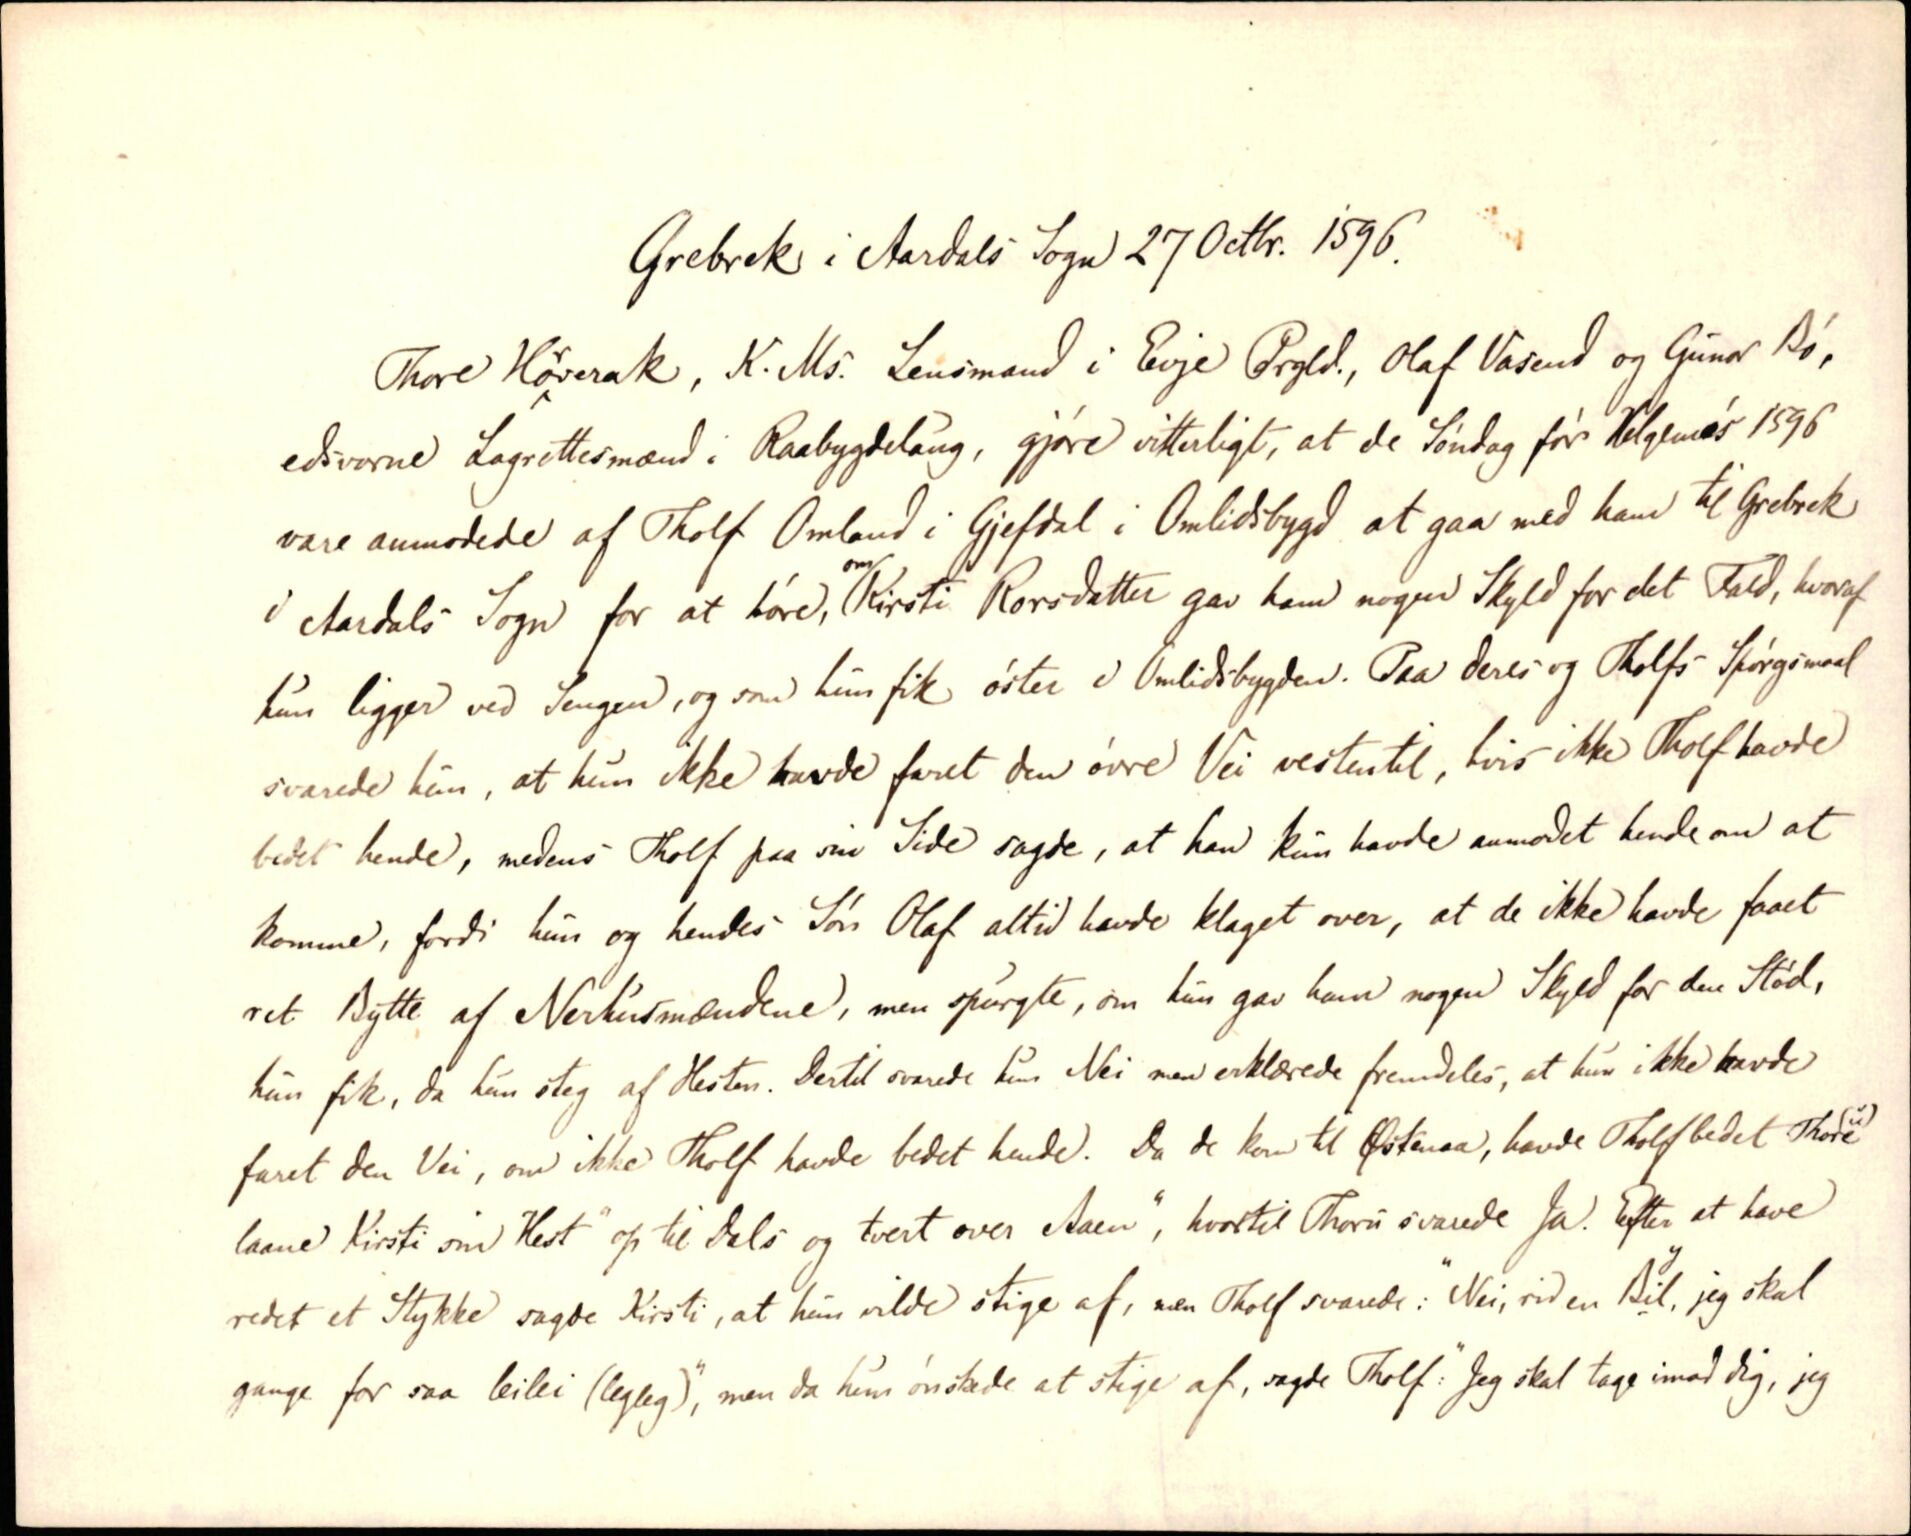 Grebrek i Aardals Sogn 27 Octbr. 1596.
Thore Hörverak, K. Ms. Lensmand i Evje Prgld., Olaf Vasend og Gunar Bó,
edsvorne Lagrettesmænd i Raabygdelaug, gjóre vitterligt, at de Sóndag fór Helgemós 1596
vare anmodede af Tholf Omland i Gjefdal i Omlidsbygd at gaa med ham til Grebrek
i Aardals Sogn for at hóre, om Kirsti Rorsdatter gav ham nogen Skyld for det Fald, hvoraf
hun ligger ved Sengen, og som hun fik óster i Omlidsbygden. Paa deres og Tholfs Spórgsmaal
svarede hun, at hun ikke havde faret den óvre Vei vestentil, hvis ikke Tholf havde
bedet hende, medens Tholf paa sin Side sagde, at han kun havde anmodet hende om at
komme, fordi hun og hendes Són Olaf altid havde klaget over, at de ikke havde faaet
ret Bytte af Nerhusmændene, men spurgte, om hun gav ham nogen Skyld for den Stód,
hun fik, da hun steg af Hesten. Dertil svarede hun Nei men erklærede fremdeles, at hun ikke havde
faret den Vei, om ikke Tholf havde bedet hende. Da de kom til Østenaa, havde Tholf bedet Thore (u)
laane Kirsti sin Hest "op til Dals og tvert over Aaen", hvortil Thoru svarede Ja. Efter at have
redet et Stykke sagde Kirsti, at hun vilde stige af, men Tholf svarede: "Nei, rid en Bil, jeg skal
gange for saa leilei (legleg)", men da hun ónskede at stige af, sagde Tholf: "Jeg skal tage imod dig, jeg